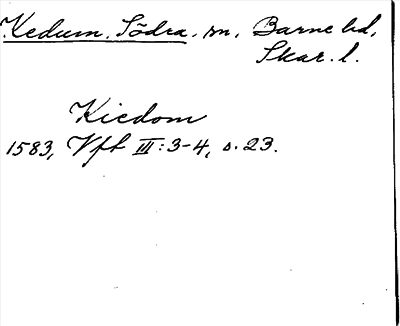 Kedum, Södra, sn, Barne hd,
Skar. l.
Kiedom
1583, Vft III:3-4, s. 23.